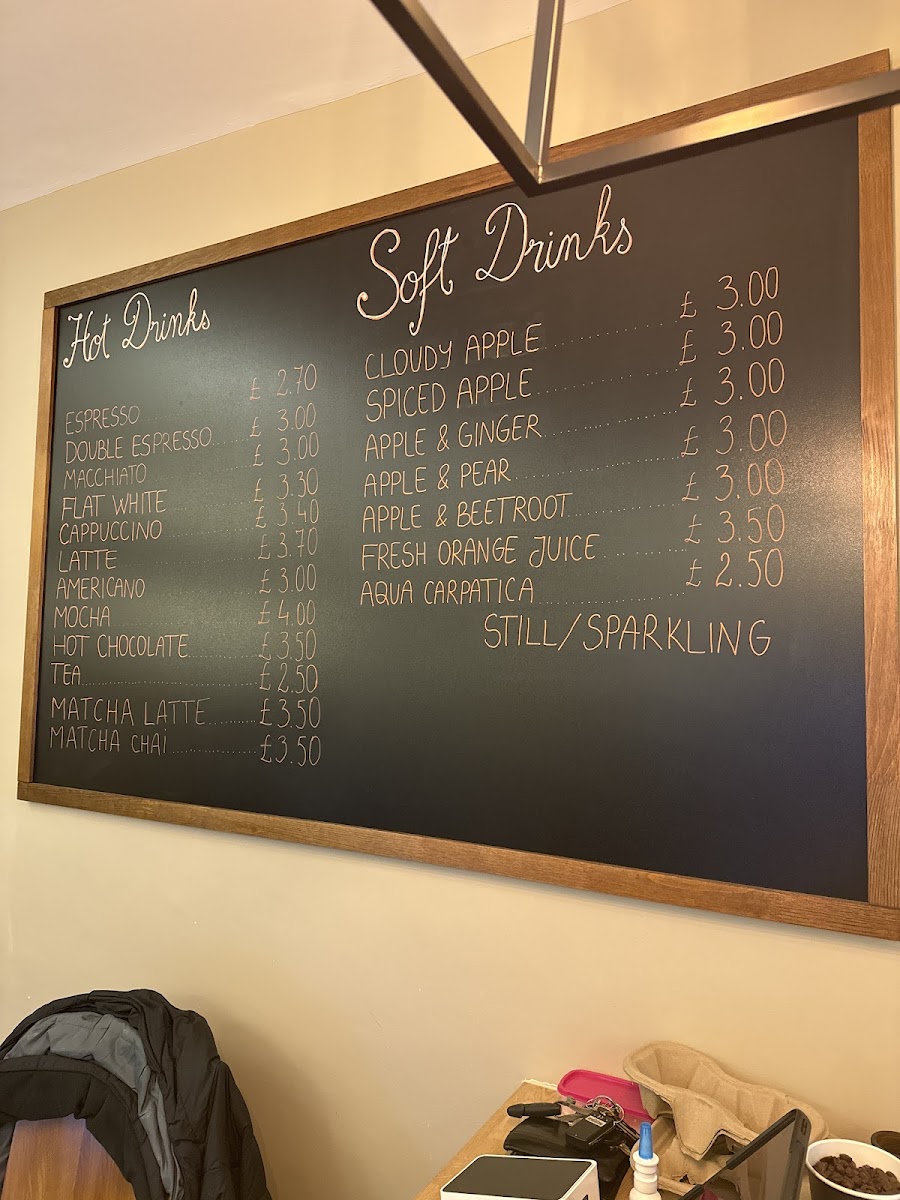 Hot Drinks
ESPRESSO £ 2.70
DOUBLE ESPRESSO £ 3.00
MACCHIATO £ 3.00
FLAT WHITE £ 3.30
CAPPUCCINO £ 3.40
LATTE £ 3.70
AMERICANO £ 3.00
MOCHA £ 4.00
HOT CHOCOLATE £3.50
TEA £2.50
MATCHA LATTE £3.50
MATCHA CHAi £3.50
Soft Drinks
CLOUDY APPLE £ 3.00
SPICED APPLE £ 3.00
APPLE & GINGER £ 3.00
APPLE & PEAR £ 3.00
APPLE & BEETROOT £ 3.00
FRESH ORANGE JUICE £ 3.50
AQUA CARPATICA £ 2.50
STILL/SPARKLING